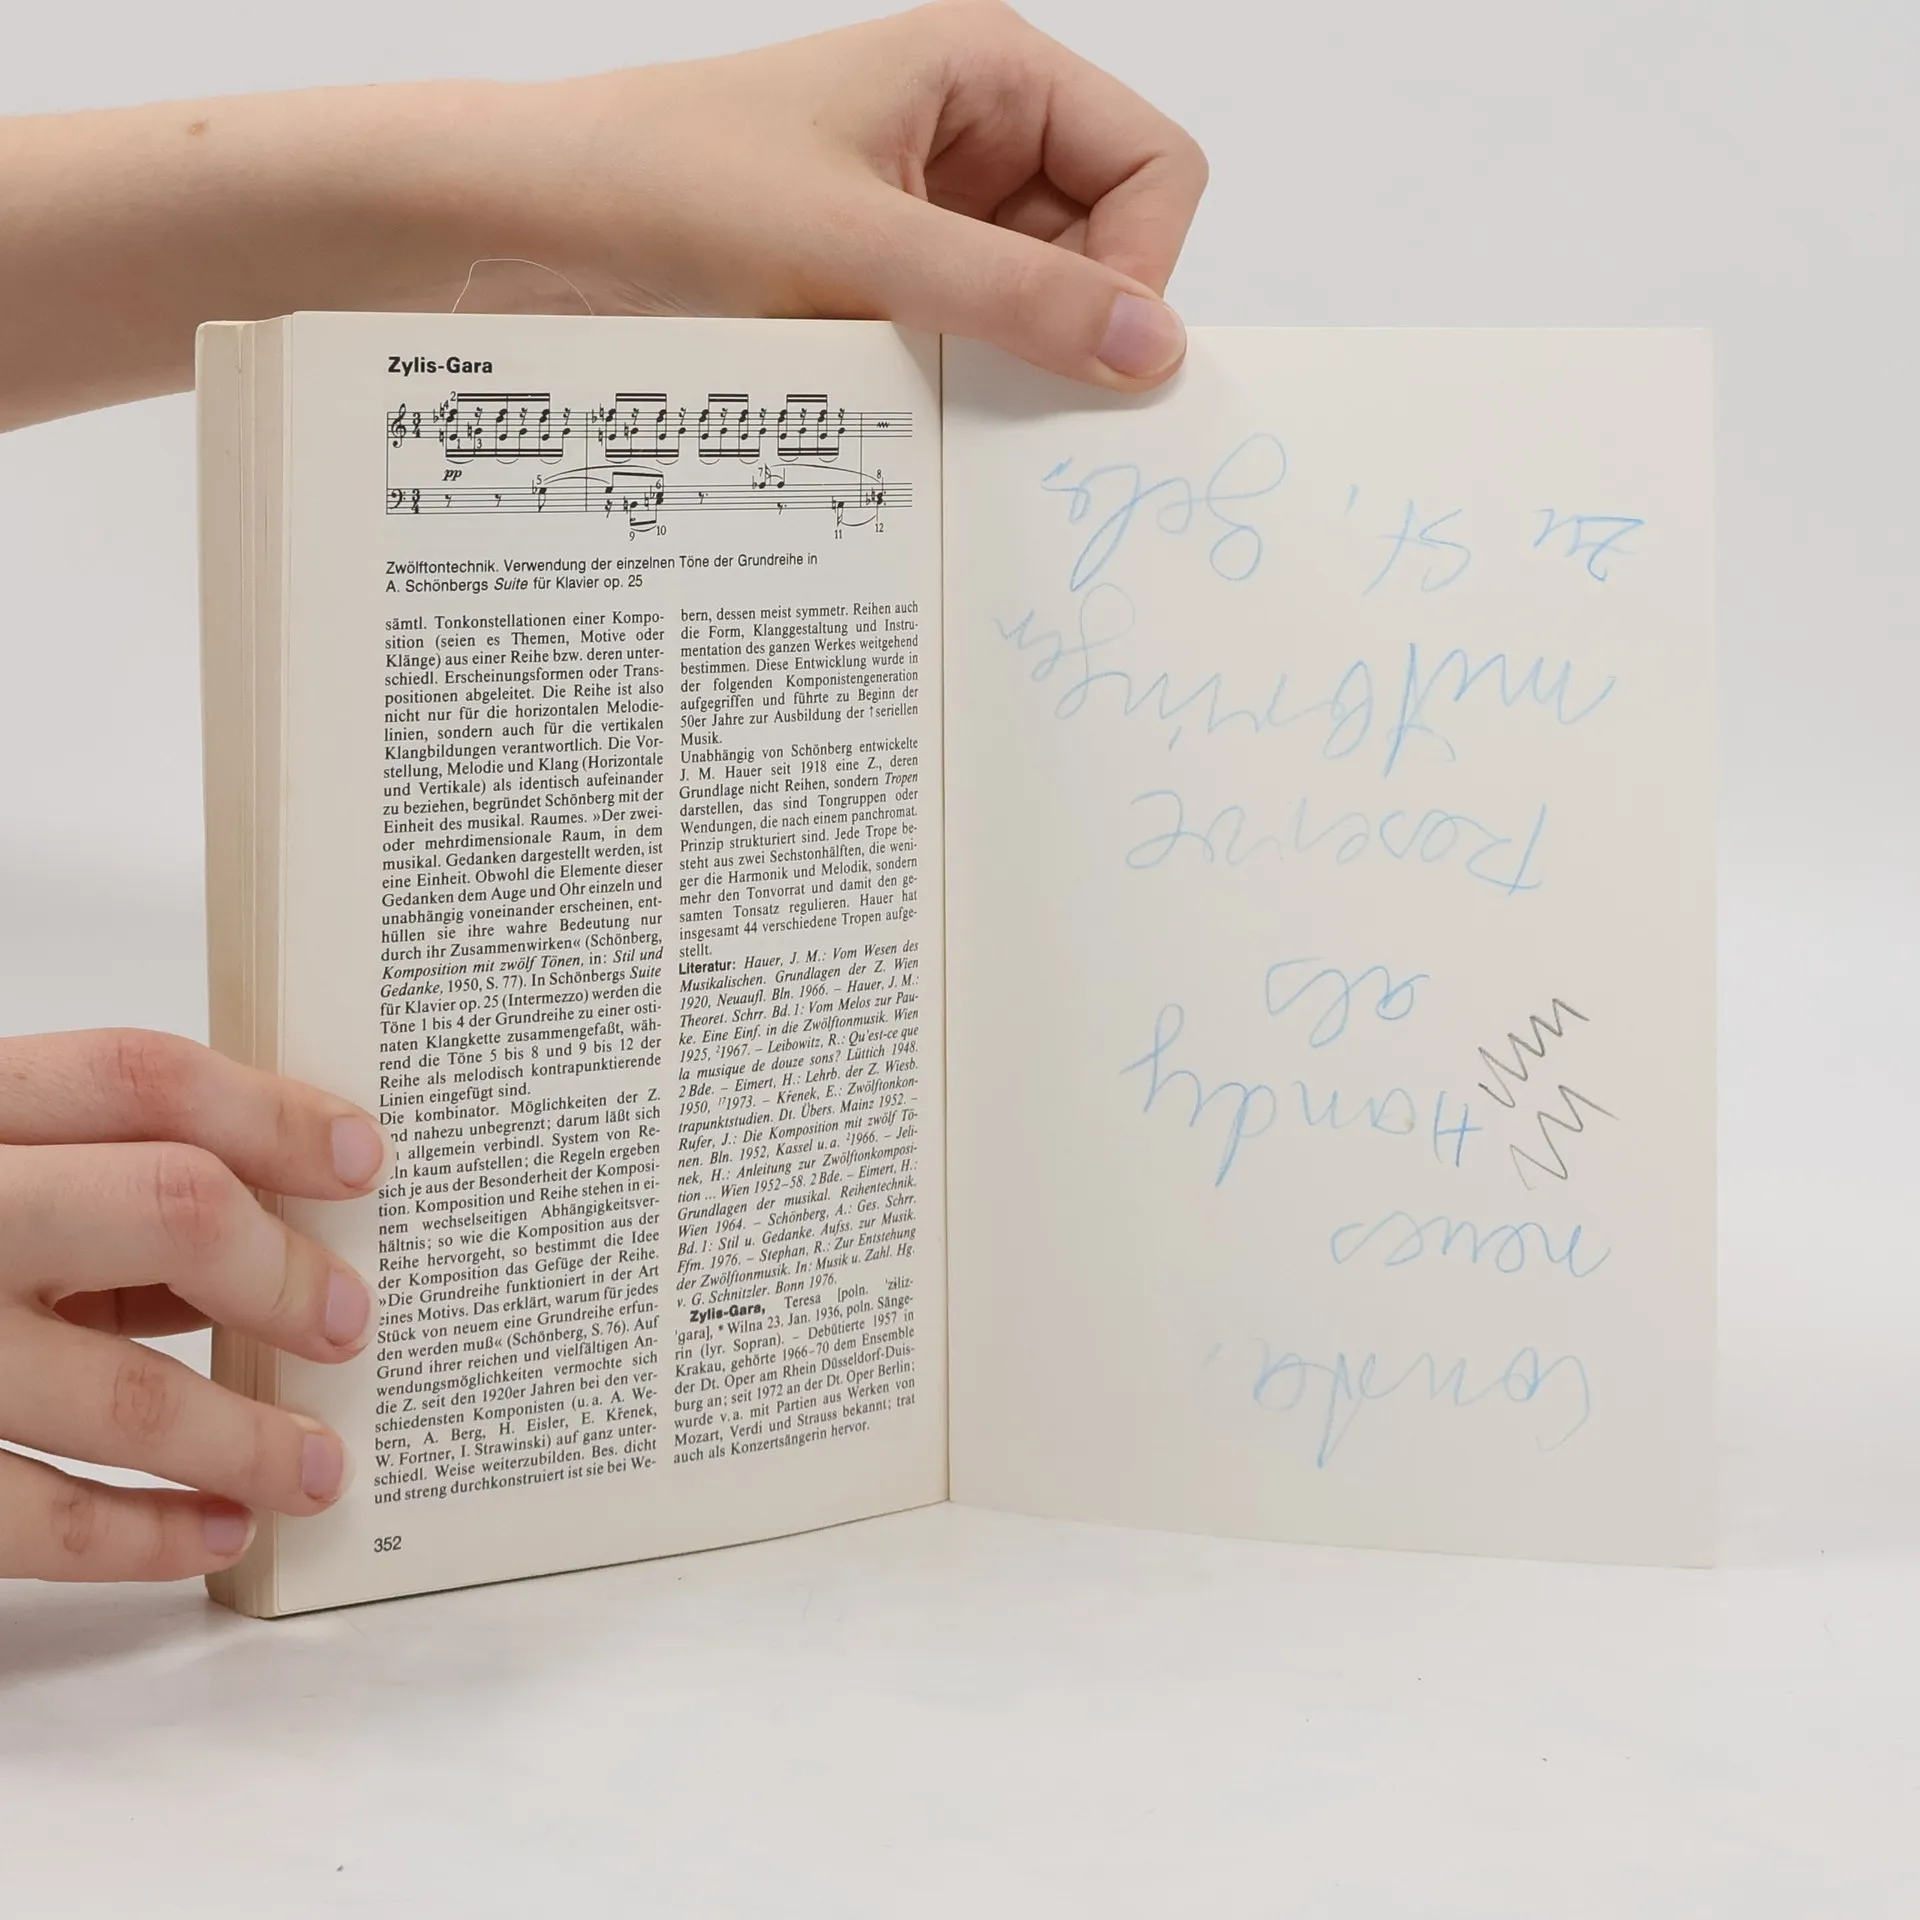 Zylis-Gara
2
4
1
3
pp
5
6
7
8
9
10
11
12
Zwölftontechnik. Verwendung der einzelnen Töne der Grundreihe in
A. Schönbergs Suite für Klavier op. 25
sämtl. Tonkonstellationen einer Kompo-
sition (seien es Themen, Motive oder
Klänge) aus einer Reihe bzw. deren unter-
schiedl. Erscheinungsformen oder Trans-
positionen abgeleitet. Die Reihe ist also
nicht nur für die horizontalen Melodie-
linien, sondern auch für die vertikalen
Klangbildungen verantwortlich. Die Vor-
stellung, Melodie und Klang (Horizontale
und Vertikale) als identisch aufeinander
zu beziehen, begründet Schönberg mit der
Einheit des musikal. Raumes. »Der zwei-
oder mehrdimensionale Raum, in dem
musikal. Gedanken dargestellt werden, ist
eine Einheit. Obwohl die Elemente dieser
Gedanken dem Auge und Ohr einzeln und
unabhängig voneinander erscheinen, ent-
hüllen sie ihre wahre Bedeutung nur
durch ihr Zusammenwirken« (Schönberg,
Komposition mit zwölf Tönen, in: Stil und
Gedanke, 1950, S. 77). In Schönbergs Suite
für Klavier op. 25 (Intermezzo) werden die
Töne 1 bis 4 der Grundreihe zu einer osti-
naten Klangkette zusammengefaßt, wäh-
rend die Töne 5 bis 8 und 9 bis 12 der
Reihe als melodisch kontrapunktierende
Linien eingefügt sind.
Die kombinator. Möglichkeiten der Z.
nd nahezu unbegrenzt; darum läßt sich
allgemein verbindl. System von Re-
ln kaum aufstellen; die Regeln ergeben
sich je aus der Besonderheit der Komposi-
tion. Komposition und Reihe stehen in ei-
nem wechselseitigen Abhängigkeitsver-
hältnis; so wie die Komposition aus der
Reihe hervorgeht, so bestimmt die Idee
der Komposition das Gefüge der Reihe.
»Die Grundreihe funktioniert in der Art
eines Motivs. Das erklärt, warum für jedes
Stück von neuem eine Grundreihe erfun-
den werden muß« (Schönberg, S. 76). Auf
Grund ihrer reichen und vielfältigen An-
wendungsmöglichkeiten vermochte sich
die Z. seit den 1920er Jahren bei den ver-
schiedensten Komponisten (u. a. A. We-
bern, A. Berg, H. Eisler, E. Křenek,
W. Fortner, I. Strawinski) auf ganz unter-
schiedl. Weise weiterzubilden. Bes. dicht
und streng durchkonstruiert ist sie bei We-
bern, dessen meist symmetr. Reihen auch
die Form, Klanggestaltung und Instru-
mentation des ganzen Werkes weitgehend
bestimmen. Diese Entwicklung wurde in
der folgenden Komponistengeneration
aufgegriffen und führte zu Beginn der
50er Jahre zur Ausbildung der ↑seriellen
Musik.
Unabhängig von Schönberg entwickelte
J. M. Hauer seit 1918 eine Z., deren
Grundlage nicht Reihen, sondern Tropen
darstellen, das sind Tongruppen oder
Wendungen, die nach einem panchromat.
Prinzip strukturiert sind. Jede Trope be-
steht aus zwei Sechstonhälften, die weni-
ger die Harmonik und Melodik, sondern
mehr den Tonvorrat und damit den ge-
samten Tonsatz regulieren. Hauer hat
insgesamt 44 verschiedene Tropen aufge-
stellt.
Literatur: Hauer, J. M.: Vom Wesen des
Musikalischen. Grundlagen der Z. Wien
1920, Neuaufl. Bln. 1966. – Hauer, J. M.:
Theoret. Schrr. Bd. 1: Vom Melos zur Pau-
ke. Eine Einf. in die Zwölftonmusik. Wien
1925, ²1967. – Leibowitz, R.: Qu'est-ce que
la musique de douze sons? Lüttich 1948.
2 Bde. – Eimert, H.: Lehrb. der Z. Wiesb.
1950, ¹⁷1973. – Křenek, E.: Zwölftonkon-
trapunktstudien. Dt. Übers. Mainz 1952. –
Rufer, J.: Die Komposition mit zwölf Tö-
nen. Bln. 1952, Kassel u. a. ²1966. – Jeli-
nek, H.: Anleitung zur Zwölftonkomposi-
tion ... Wien 1952–58. 2 Bde. – Eimert, H.:
Grundlagen der musikal. Reihentechnik.
Wien 1964. – Schönberg, A.: Ges. Schrr.
Bd. 1: Stil u. Gedanke. Aufss. zur Musik.
Ffm. 1976. – Stephan, R.: Zur Entstehung
der Zwölftonmusik. In: Musik u. Zahl. Hg.
v. G. Schnitzler. Bonn 1976.
Zylis-Gara, Teresa [poln. 'ziliz-
'gara], * Wilna 23. Jan. 1936, poln. Sänge-
rin (lyr. Sopran). – Debütierte 1957 in
Krakau, gehörte 1966–70 dem Ensemble
der Dt. Oper am Rhein Düsseldorf-Duis-
burg an; seit 1972 an der Dt. Oper Berlin;
wurde v. a. mit Partien aus Werken von
Mozart, Verdi und Strauss bekannt; trat
auch als Konzertsängerin hervor.
352
neues
Handy
als
Reserve
zu St,